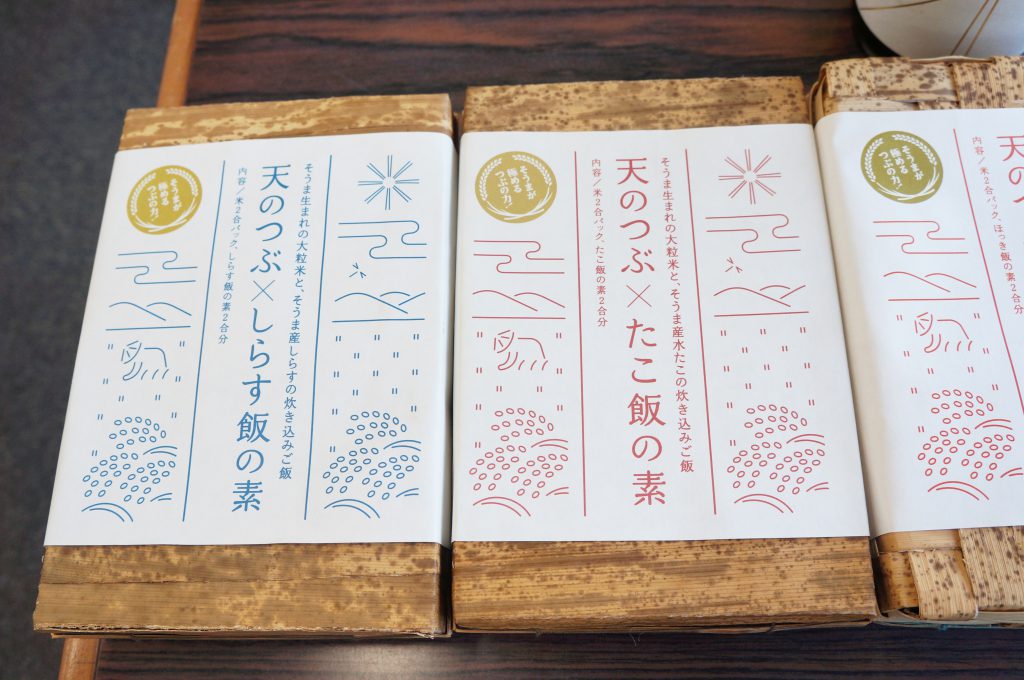 そうまが
極める
つぶの力。
そうま生まれの大粒米と、そうま産しらすの炊き込みご飯
天のつぶ×しらす飯の素
内容/米2合パック、しらす飯の素2合分
そうまが
極める
つぶの力。
そうま生まれの大粒米と、そうま産水たこの炊き込みご飯
天のつぶ×たこ飯の素
内容/米2合パック、たこ飯の素2合分
そうまが
極める
つぶの力。
天のつ
内容/米2合パック、ほっき飯の素2合分